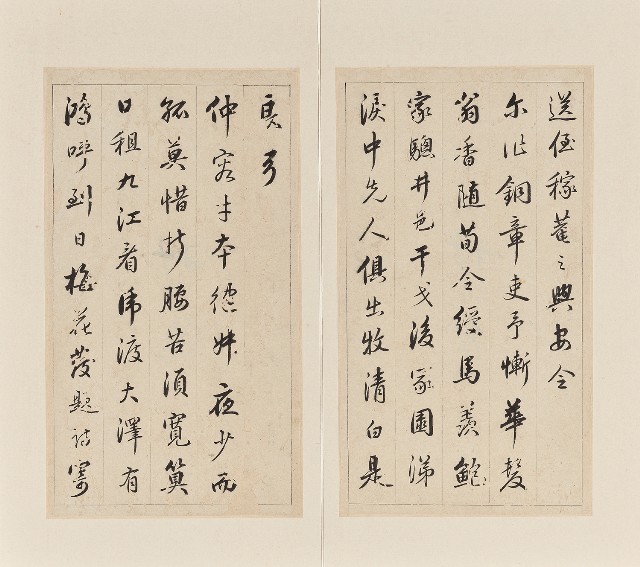 送侄稼菴之興安令
尔作銅章吏予慚華髮
翁香隨荀令綬馬羨鮑
家驄井邑干戈後冢園涕
淚中先人俱出牧清白是
良弓
仲容才本少而
孤莫惜折腰苦須寬算
口租九江看虎渡大澤有
鴻呼到日梅花發題詩寄